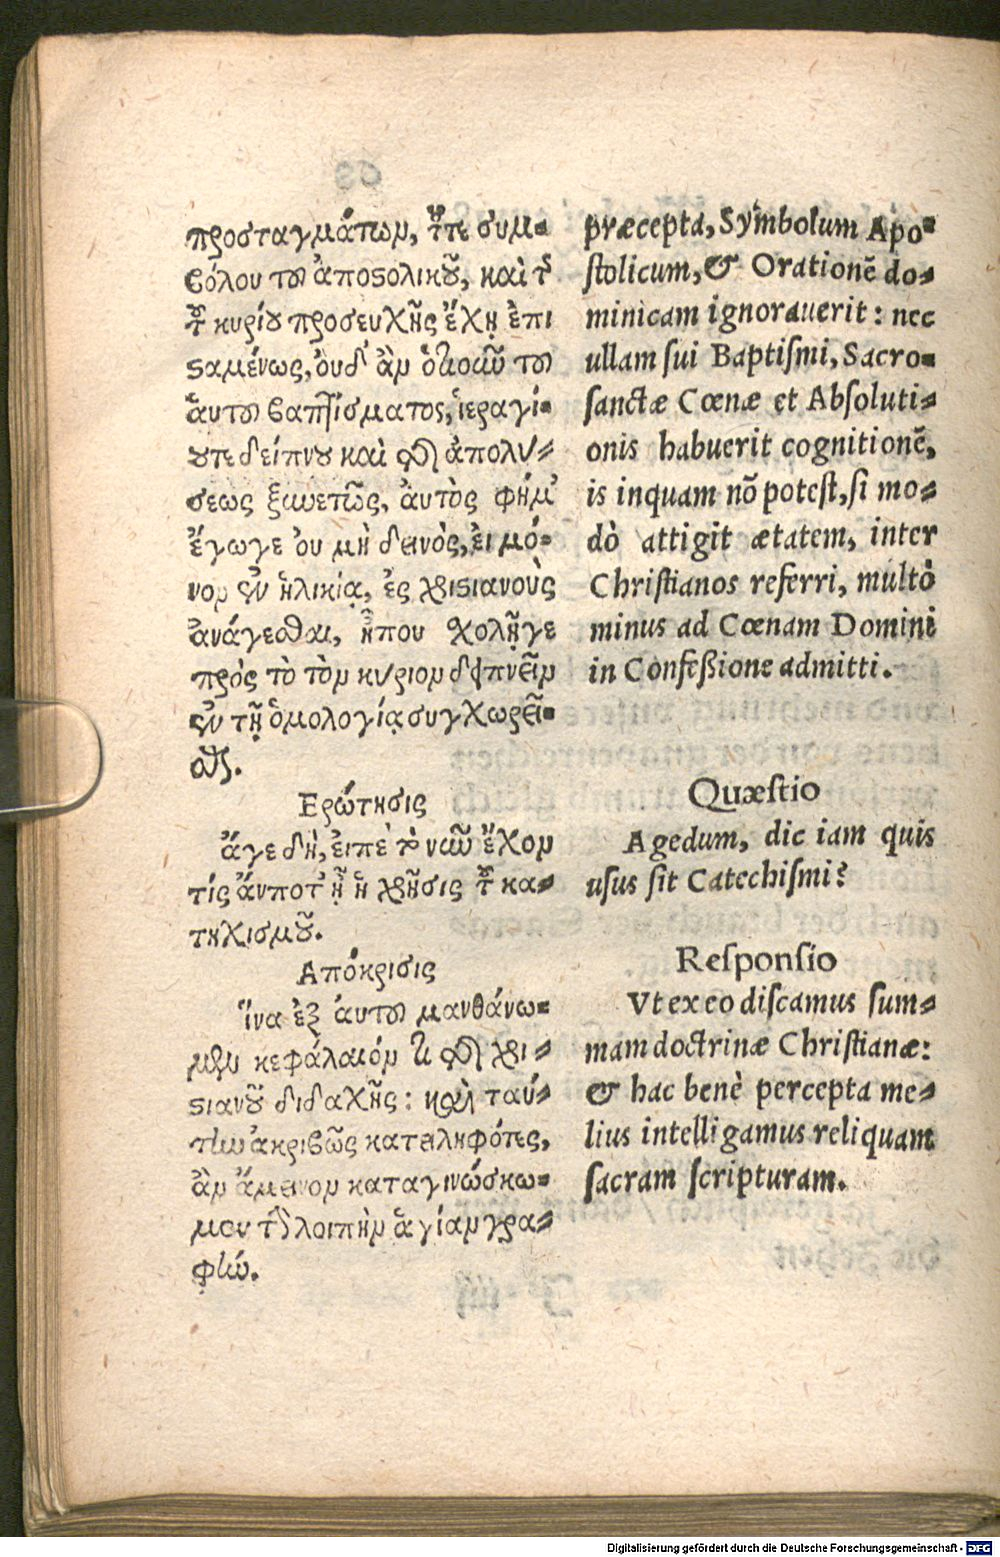 προσταγμάτων, ἤτε συμ-
βόλου τοῦ ἀποστολικοῦ, καὶ τῆς
τοῦ κυρίου προσευχῆς ἔχῃ ἐπι
σταμένως, ουδ' ἂν ὁτιοῦν τοῦ
ἑαυτοῦ βαπτίσματος, ἱεραγί-
ουτε δείπνου καὶ τῆς ἀπολύ-
σεως ξυνετῶς, ἀυτὸς φήμ'
ἔγωγε ὀυ μὴ δεινὸς, ἐι μό-
νον ἐν ἡλικίᾳ, ἐς χριστιανοὺς
ἀνάγεσθαι, ἤπου σχολῇγε
πρὸς τὸ τὸν κύριον δειπνεῖν
ἐν τῇ ὁμολογίᾳ συγχωρεῖ-
σθαι.
Ερώτησις
ἄγε δὴ, ἐιπὲ τὸ νῦν ἔχον
τίς ἄνποτ' ᾖ ἡ χρῆσις τοῦ κα-
τηχισμοῦ.
Απόκρισις
ἵνα ἐξ ἀυτοῦ μανθάνω-
μεν κεφάλαιόν τι τῆς χρι-
στιανοῦ διδαχῆς: καὶ ταύ-
την ἀκριβῶς κατειληφότες,
ἂν ἄμεινον καταγινώσκω-
μεν τὴν λοιπὴν ἁγίαν γρα-
φὴν.
præcepta, Symbolum Apo-
stolicum, & Orationē do-
minicam ignorauerit: nec
ullam sui Baptismi, Sacro-
sanctæ Cœnæ et Absoluti-
onis habuerit cognitionē,
is inquam nō potest, si mo-
dò attigit ætatem, inter
Christianos referri, multò
minus ad Cœnam Domini
in Confeßione admitti.
Quæstio
Agedum, dic iam quis
usus sit Catechismi?
Responsio
Vt ex eo discamus sum-
mam doctrinæ Christianæ:
& hac benè percepta me-
lius intelligamus reliquam
sacram scripturam.
Digitalisierung gefördert durch die Deutsche Forschungsgemeinschaft - DFG